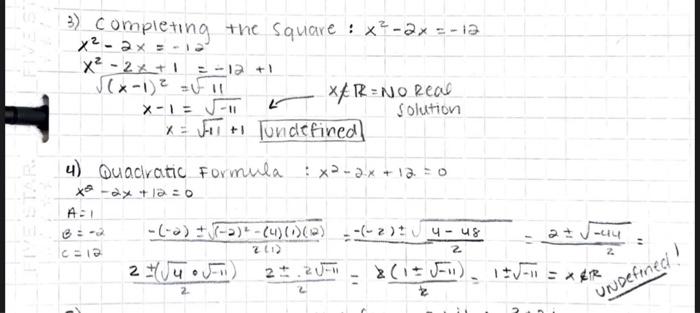 3) Completing the Square : x² - 2x = -12
x² - 2x = -12
x² - 2x + 1 = -12 + 1
√(x-1)² = √-11
x - 1 = √-11 ← x∉ℝ = No Real
Solution
x = √-11 + 1 undefined
4) Quadratic Formula : x² - 2x + 12 = 0
x² - 2x + 12 = 0
A = 1
B = -2
C = 12
-(-2) ± √(-2)² - (4)(1)(12) / 2(1) = -(-2) ± √4 - 48 / 2 = 2 ± √-44 / 2 =
2 ± (√4 • √-11) / 2 2 ± 2√-11 / 2 = 2(1 ± √-11) / 2 = 1 ± √-11 = x∉ℝ UNDefined!